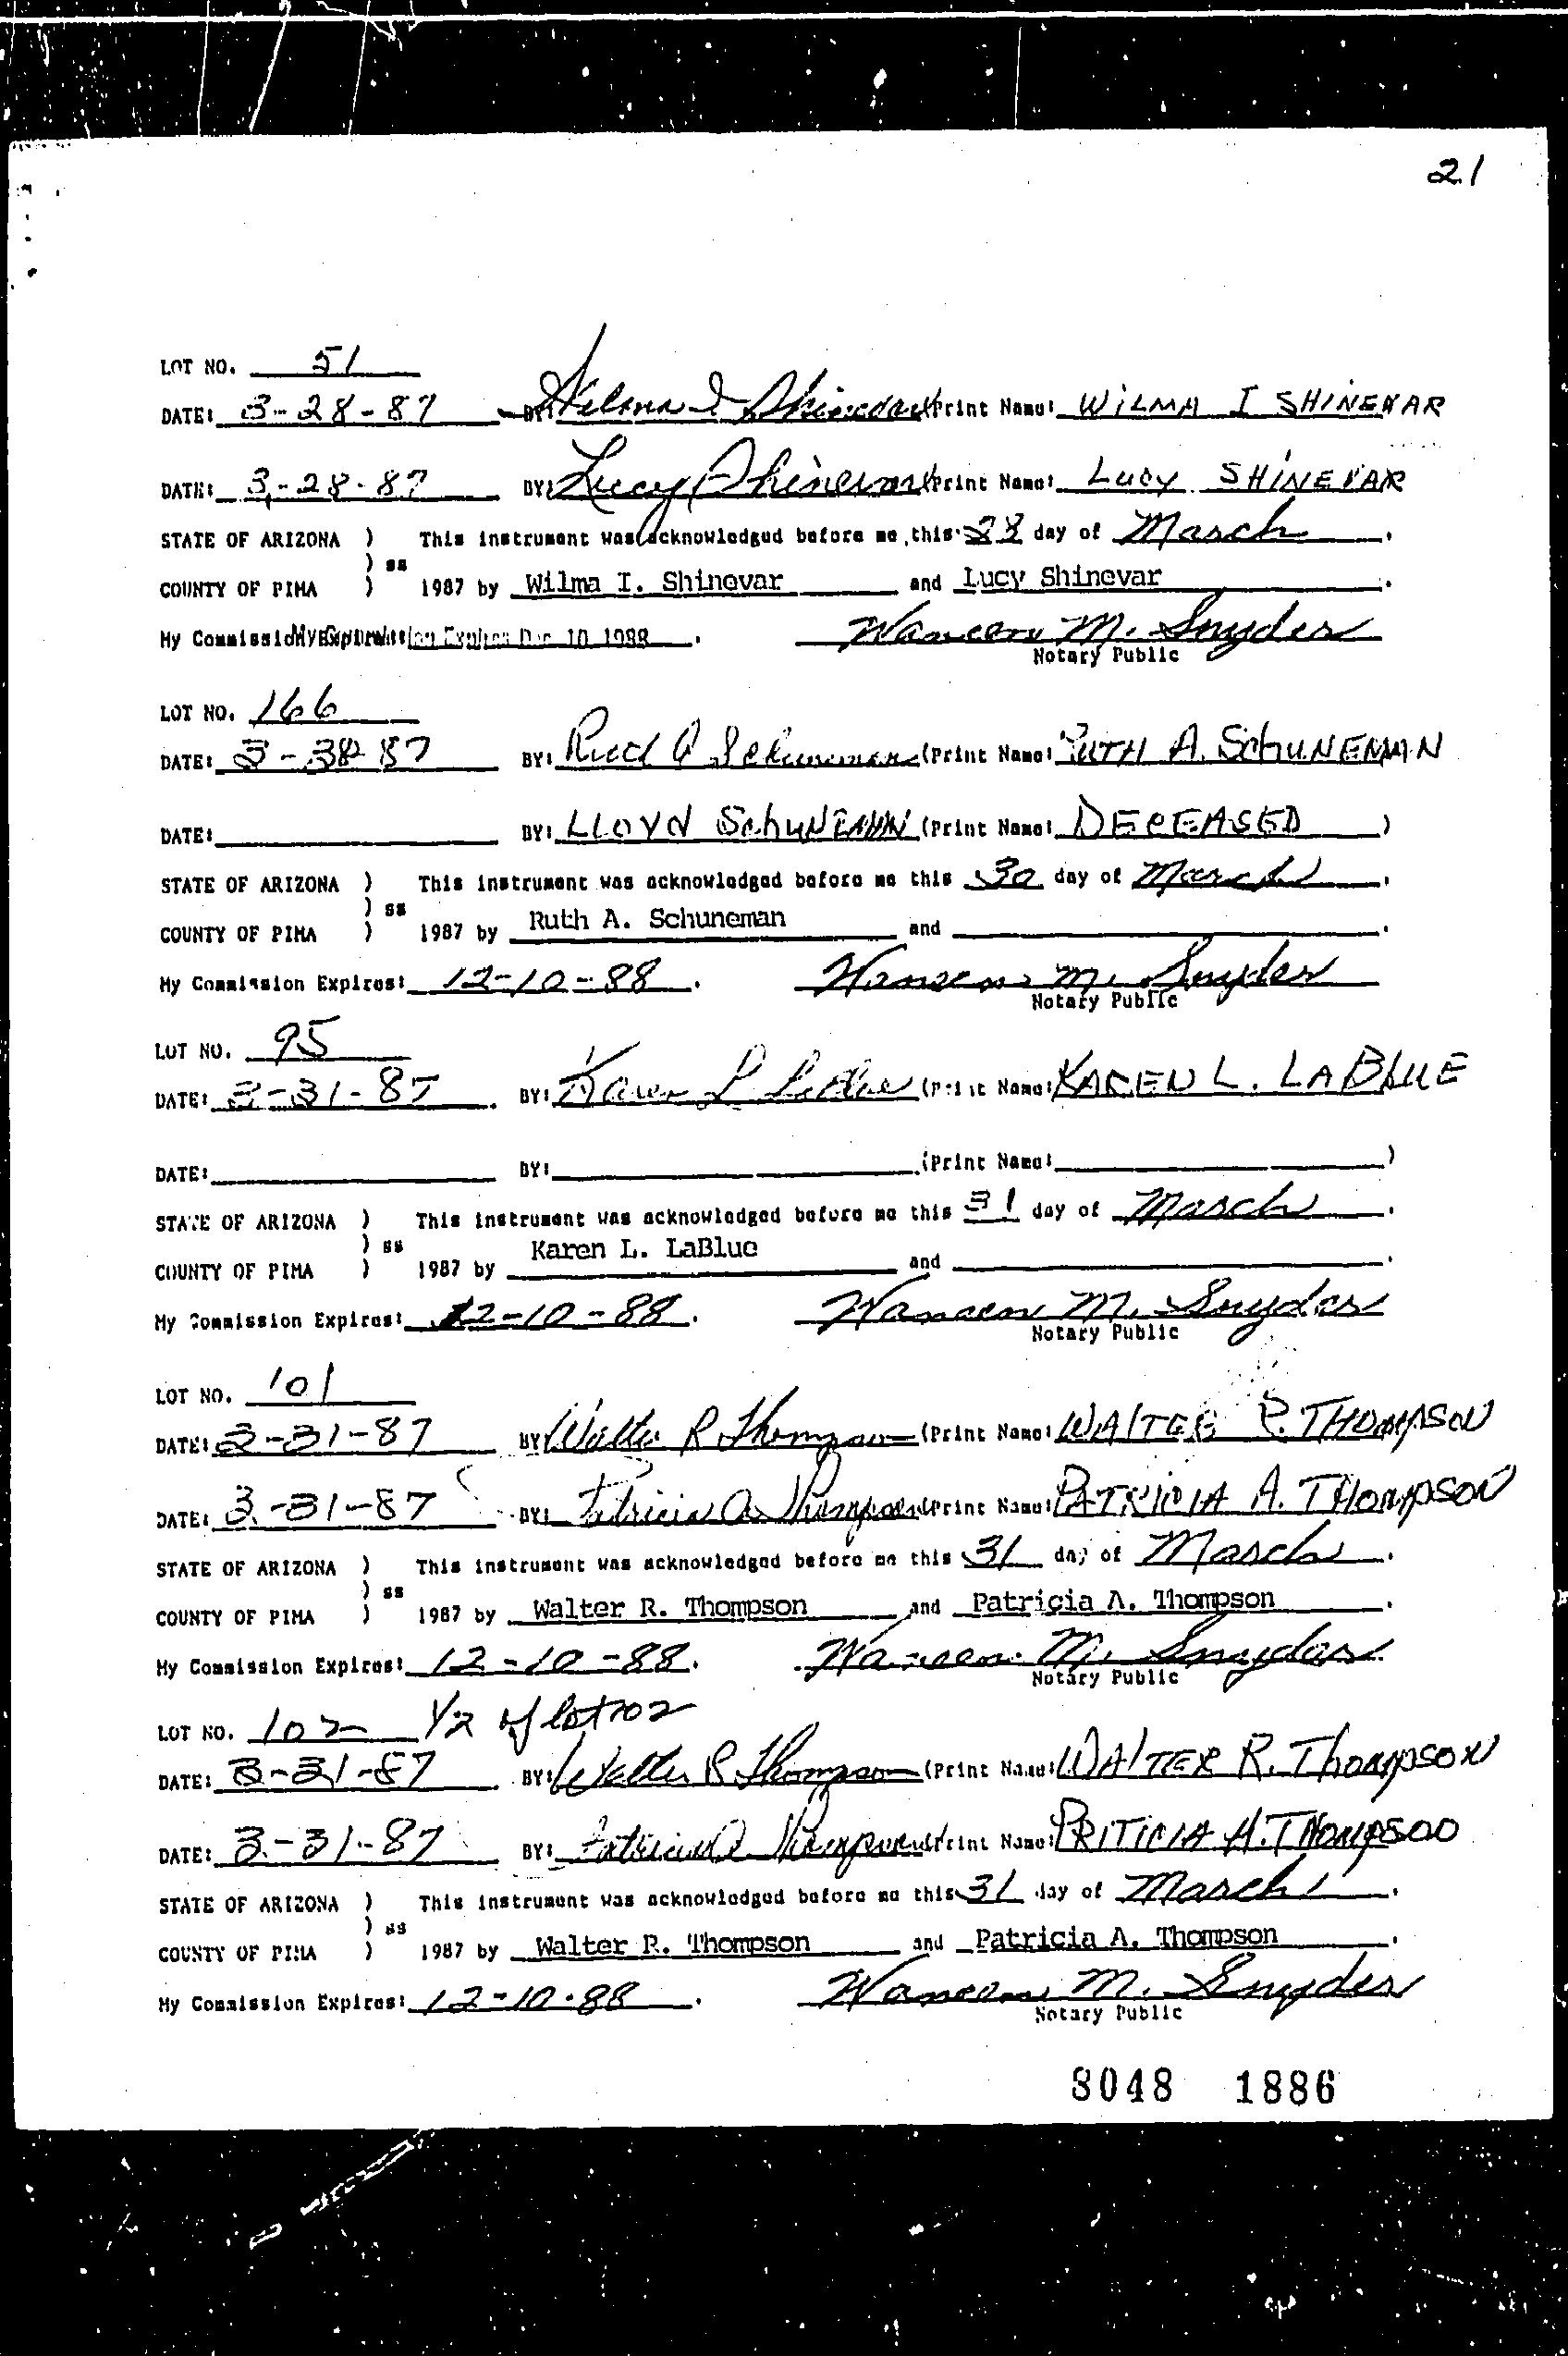 21
LOT NO. 51
DATE: 3-28-87 BY: Wilma I Shinevar (Print Name: WILMA I SHINEVAR
DATE: 3-28-87 BY: Lucy Shinevar (Print Name: LUCY SHINEVAR
STATE OF ARIZONA ) This instrument was acknowledged before me this 28 day of March,
) ss
COUNTY OF PIMA ) 1987 by Wilma I. Shinevar and Lucy Shinevar.
My Commission Expires Dec 10 1988. M. Snyder
Notary Public
LOT NO. 166
DATE: 3-30-87 BY: Ruth A Schuneman (Print Name: RUTH A. SCHUNEMAN
DATE: BY: LLOYD SchUNEMAN (Print Name: DECEASED )
STATE OF ARIZONA ) This instrument was acknowledged before me this 30 day of March,
) ss
COUNTY OF PIMA ) 1987 by Ruth A. Schuneman and .
My Commission Expires: 12-10-88. M. Snyder
Notary Public
LOT NO. 95
DATE: 3-31-87 BY: Karen L LaBlue (Print Name: KAREN L. LABLUE
DATE: BY: (Print Name: )
STATE OF ARIZONA ) This instrument was acknowledged before me this 31 day of March,
) ss
COUNTY OF PIMA ) 1987 by Karen L. LaBlue and .
My Commission Expires: 12-10-88. M. Snyder
Notary Public
LOT NO. 101
DATE: 3-31-87 BY: Walter R Thompson (Print Name: WALTER R. THOMPSON
DATE: 3-31-87 BY: Patricia A. Thompson (Print Name: PATRICIA A. THOMPSON
STATE OF ARIZONA ) This instrument was acknowledged before me this 31 day of March,
) ss
COUNTY OF PIMA ) 1987 by Walter R. Thompson and Patricia A. Thompson.
My Commission Expires: 12-10-88. M. Snyder
Notary Public
LOT NO. 102 1/2 of lot 102
DATE: 3-31-87 BY: Walter R Thompson (Print Name: WALTER R. THOMPSON
DATE: 3-31-87 BY: Patricia A Thompson (Print Name: PRITICIA A. THOMPSON
STATE OF ARIZONA ) This instrument was acknowledged before me this 31 day of March,
) ss
COUNTY OF PIMA ) 1987 by Walter R. Thompson and Patricia A. Thompson.
My Commission Expires: 12-10-88. M. Snyder
Notary Public
8048 1886